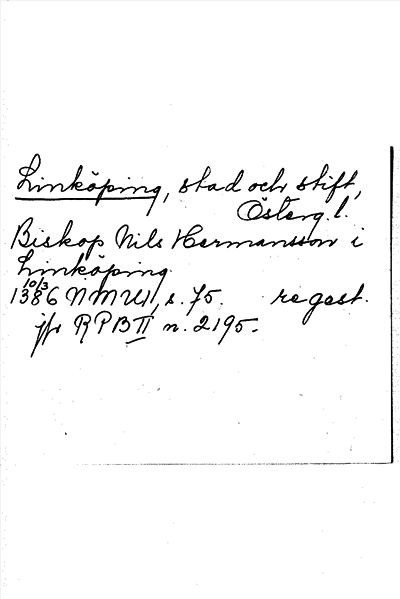 Linköping, stad och stift,
Österg. l.
Biskop Nils Hermansson i
Linköping.
10/3
1386 NMU II, s. 75. regest.
jfr RPB II n. 2195.